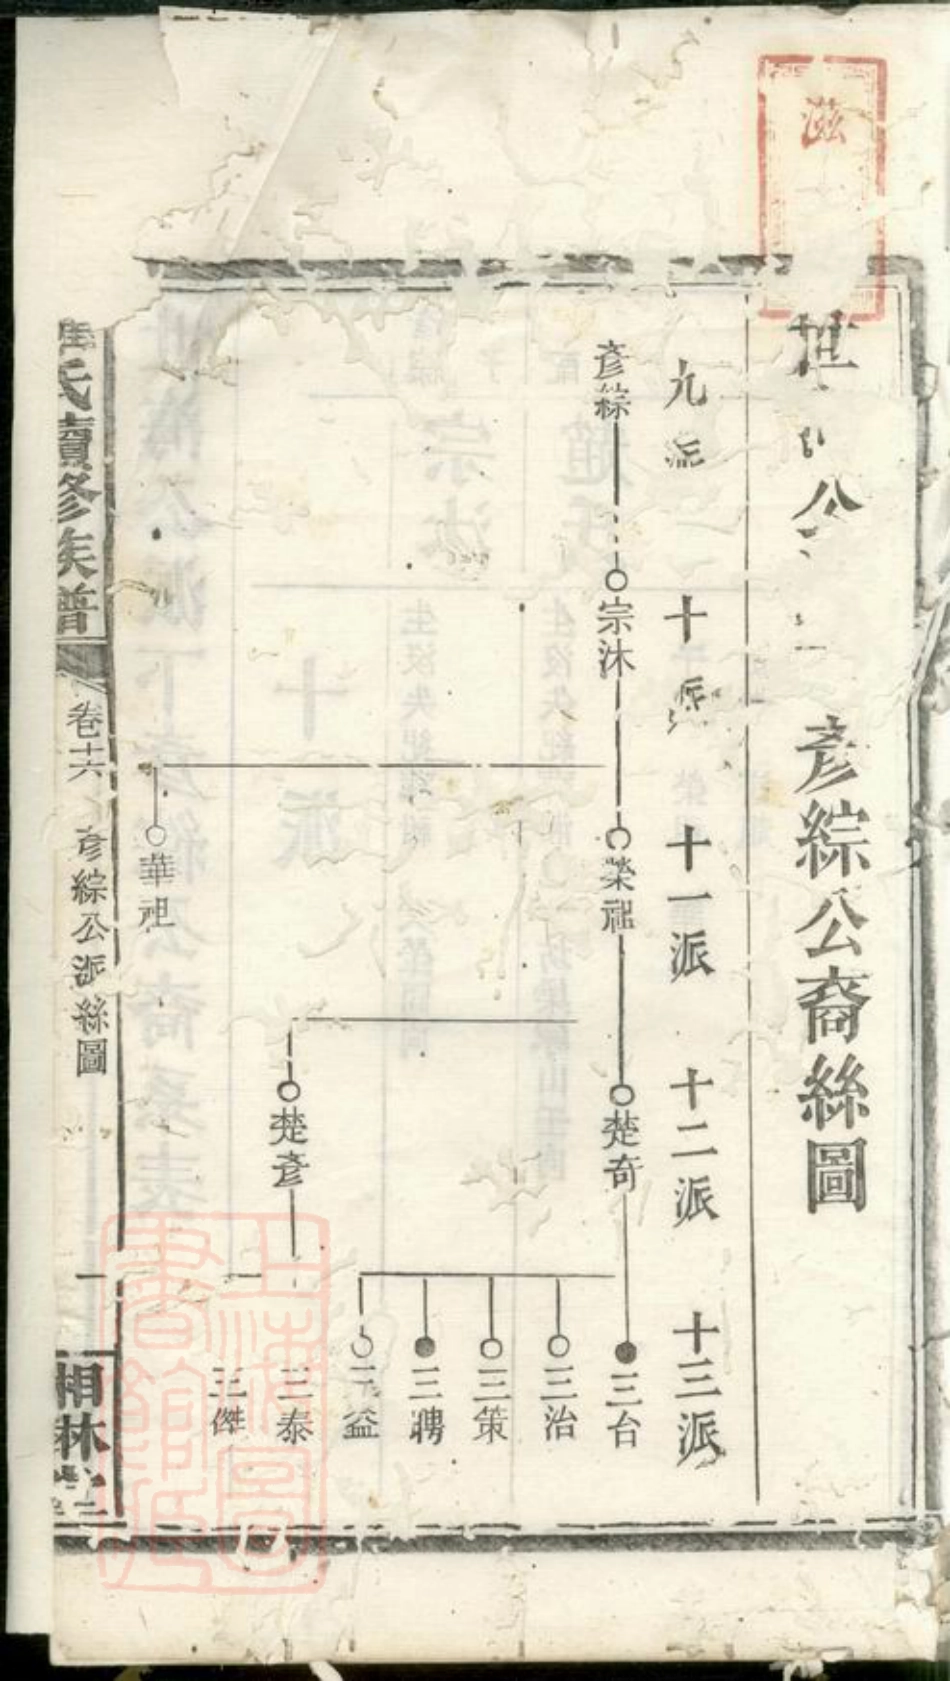 滋
世
公
彥綜公裔絲圖
九派
十派
十一派
十二派
十三派
彥綜
宗沐
榮祖
楚奇
三台
三治
三策
三聘
三益
楚彥
三泰
三傑
華祖
氏續修族譜
卷十六
彥綜公派絲圖
相林
上海圖書館藏